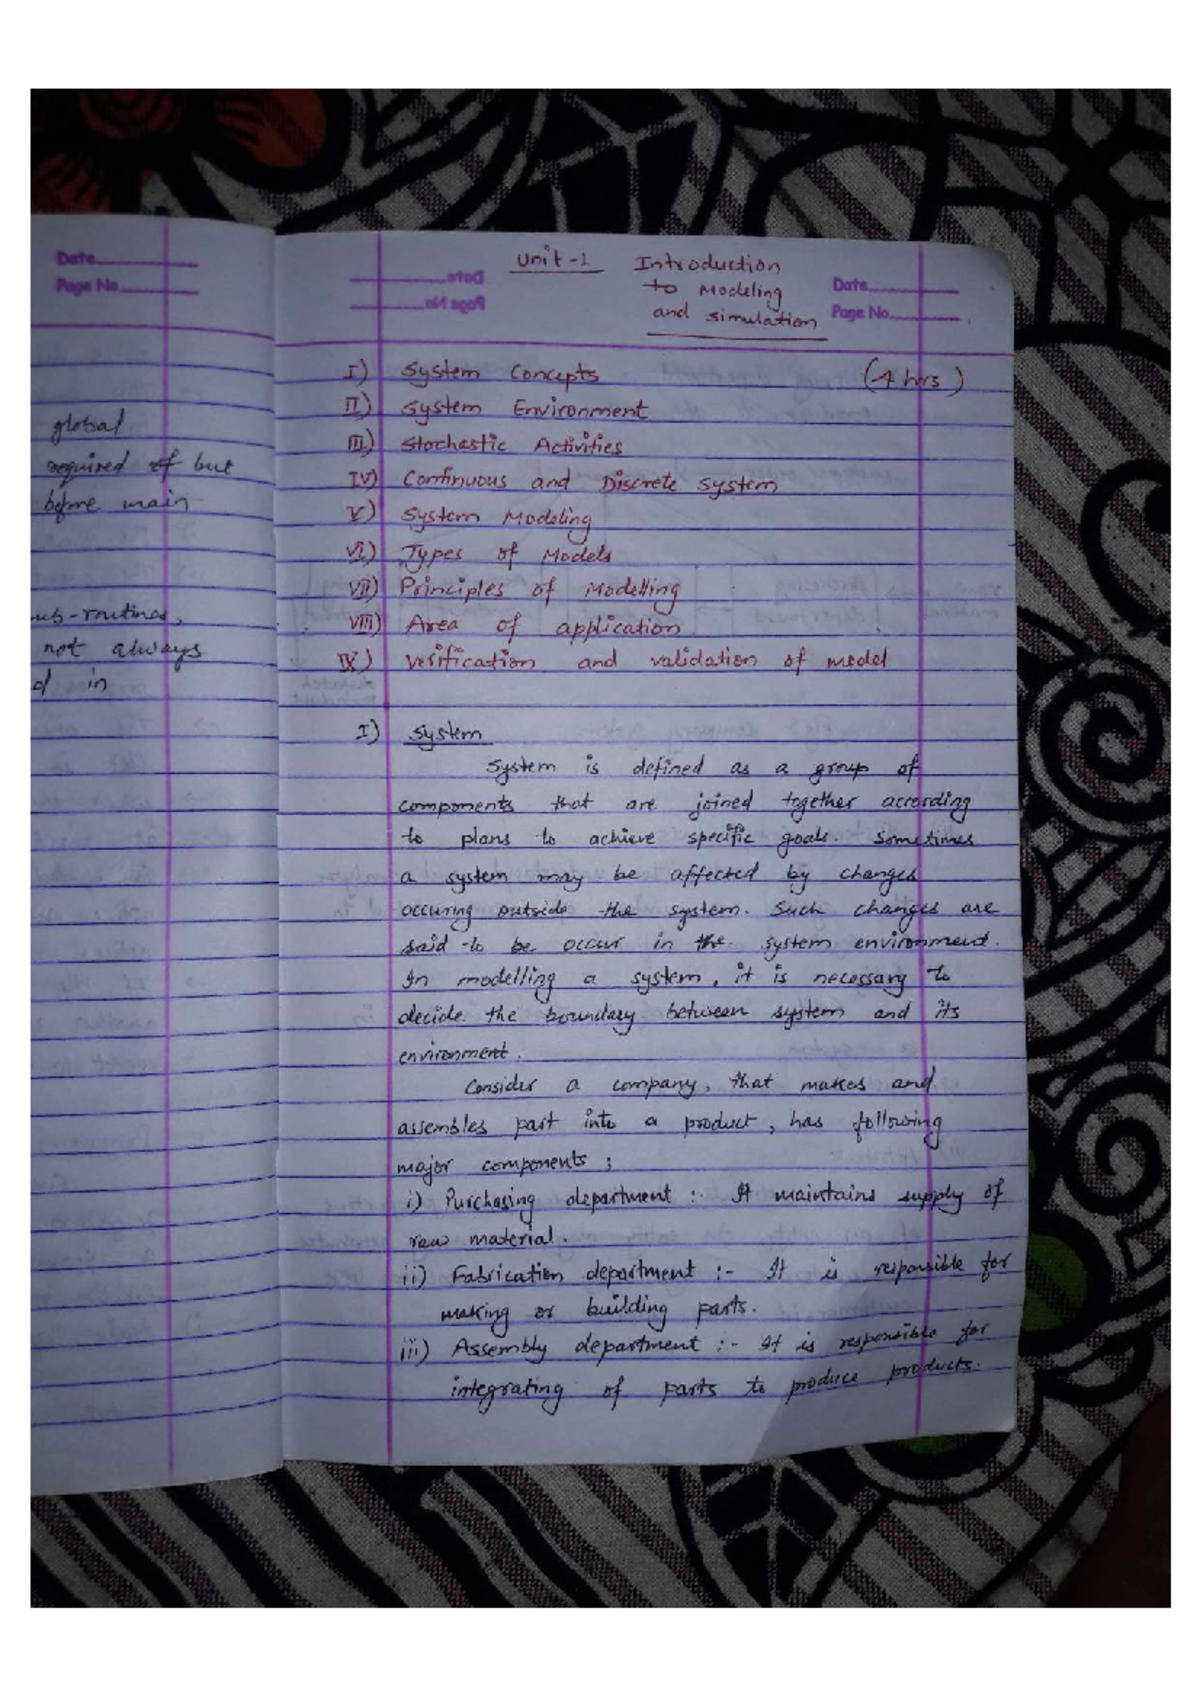 Date
Page No
global
required of but
before main
sub-routines,
not always
d in
Unit-1 Introduction
to Modeling
and simulation
Date
Page No.
Date
Page No.
I) System Concepts (4 hrs)
II) System Environment
III) Stochastic Activities
IV) Continuous and Discrete system
V) System Modeling
VI) Types of Models
VII) Principles of Modelling
VIII) Area of application
IX) Verification and validation of model
I) System
System is defined as a group of
components that are joined together according
to plans to achieve specific goals. Sometimes
a system may be affected by changes
occuring outside the system. Such changes are
said to be occur in the system environment.
In modelling a system, it is necessary to
decide the boundary between system and its
environment.
Consider a company, that makes and
assembles part into a product, has following
major components ;
i) Purchasing department :- It maintains supply of
raw material.
ii) Fabrication department :- It is responsible for
making or building parts.
iii) Assembly department :- It is responsible for
integrating of parts to produce products.